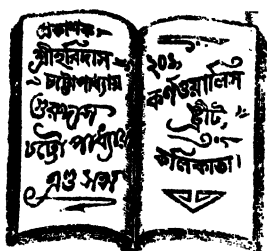 প্রকাশক:
শ্রীহরিদাস
চট্টোপাধ্যায়
গুরুদাস
চট্টোপাধ্যায়
এণ্ড সন্স
২০১,
কর্ণওয়ালিস
ষ্ট্রীট,
কলিকাতা।